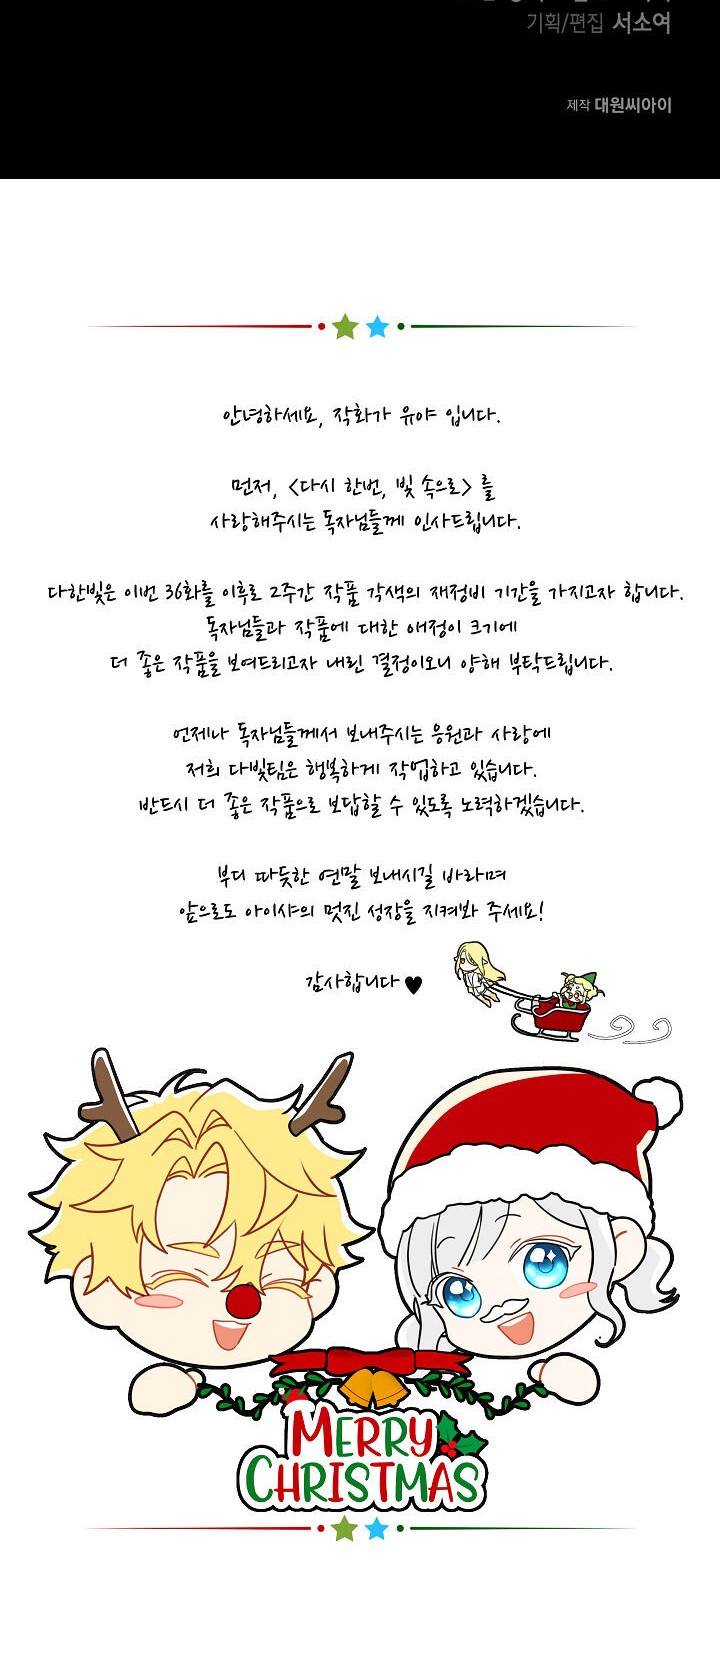 기획/편집 서소여
제작 대원씨아이
안녕하세요, 작화가 유야 입니다.
먼저, <다시 한번, 빛 속으로> 를
사랑해주시는 독자님들께 인사드립니다.
다한빛은 이번 36화를 이후로 2주간 작품 각색의 재정비 기간을 가지고자 합니다.
독자님들과 작품에 대한 애정이 크기에
더 좋은 작품을 보여드리고자 내린 결정이오니 양해 부탁드립니다.
언제나 독자님들께서 보내주시는 응원과 사랑에
저희 다빛팀은 행복하게 작업하고 있습니다.
반드시 더 좋은 작품으로 보답할 수 있도록 노력하겠습니다.
부디 따듯한 연말 보내시길 바라며
앞으로도 아이샤의 멋진 성장을 지켜봐 주세요!
감사합니다 ♥
MERRY
CHRISTMAS